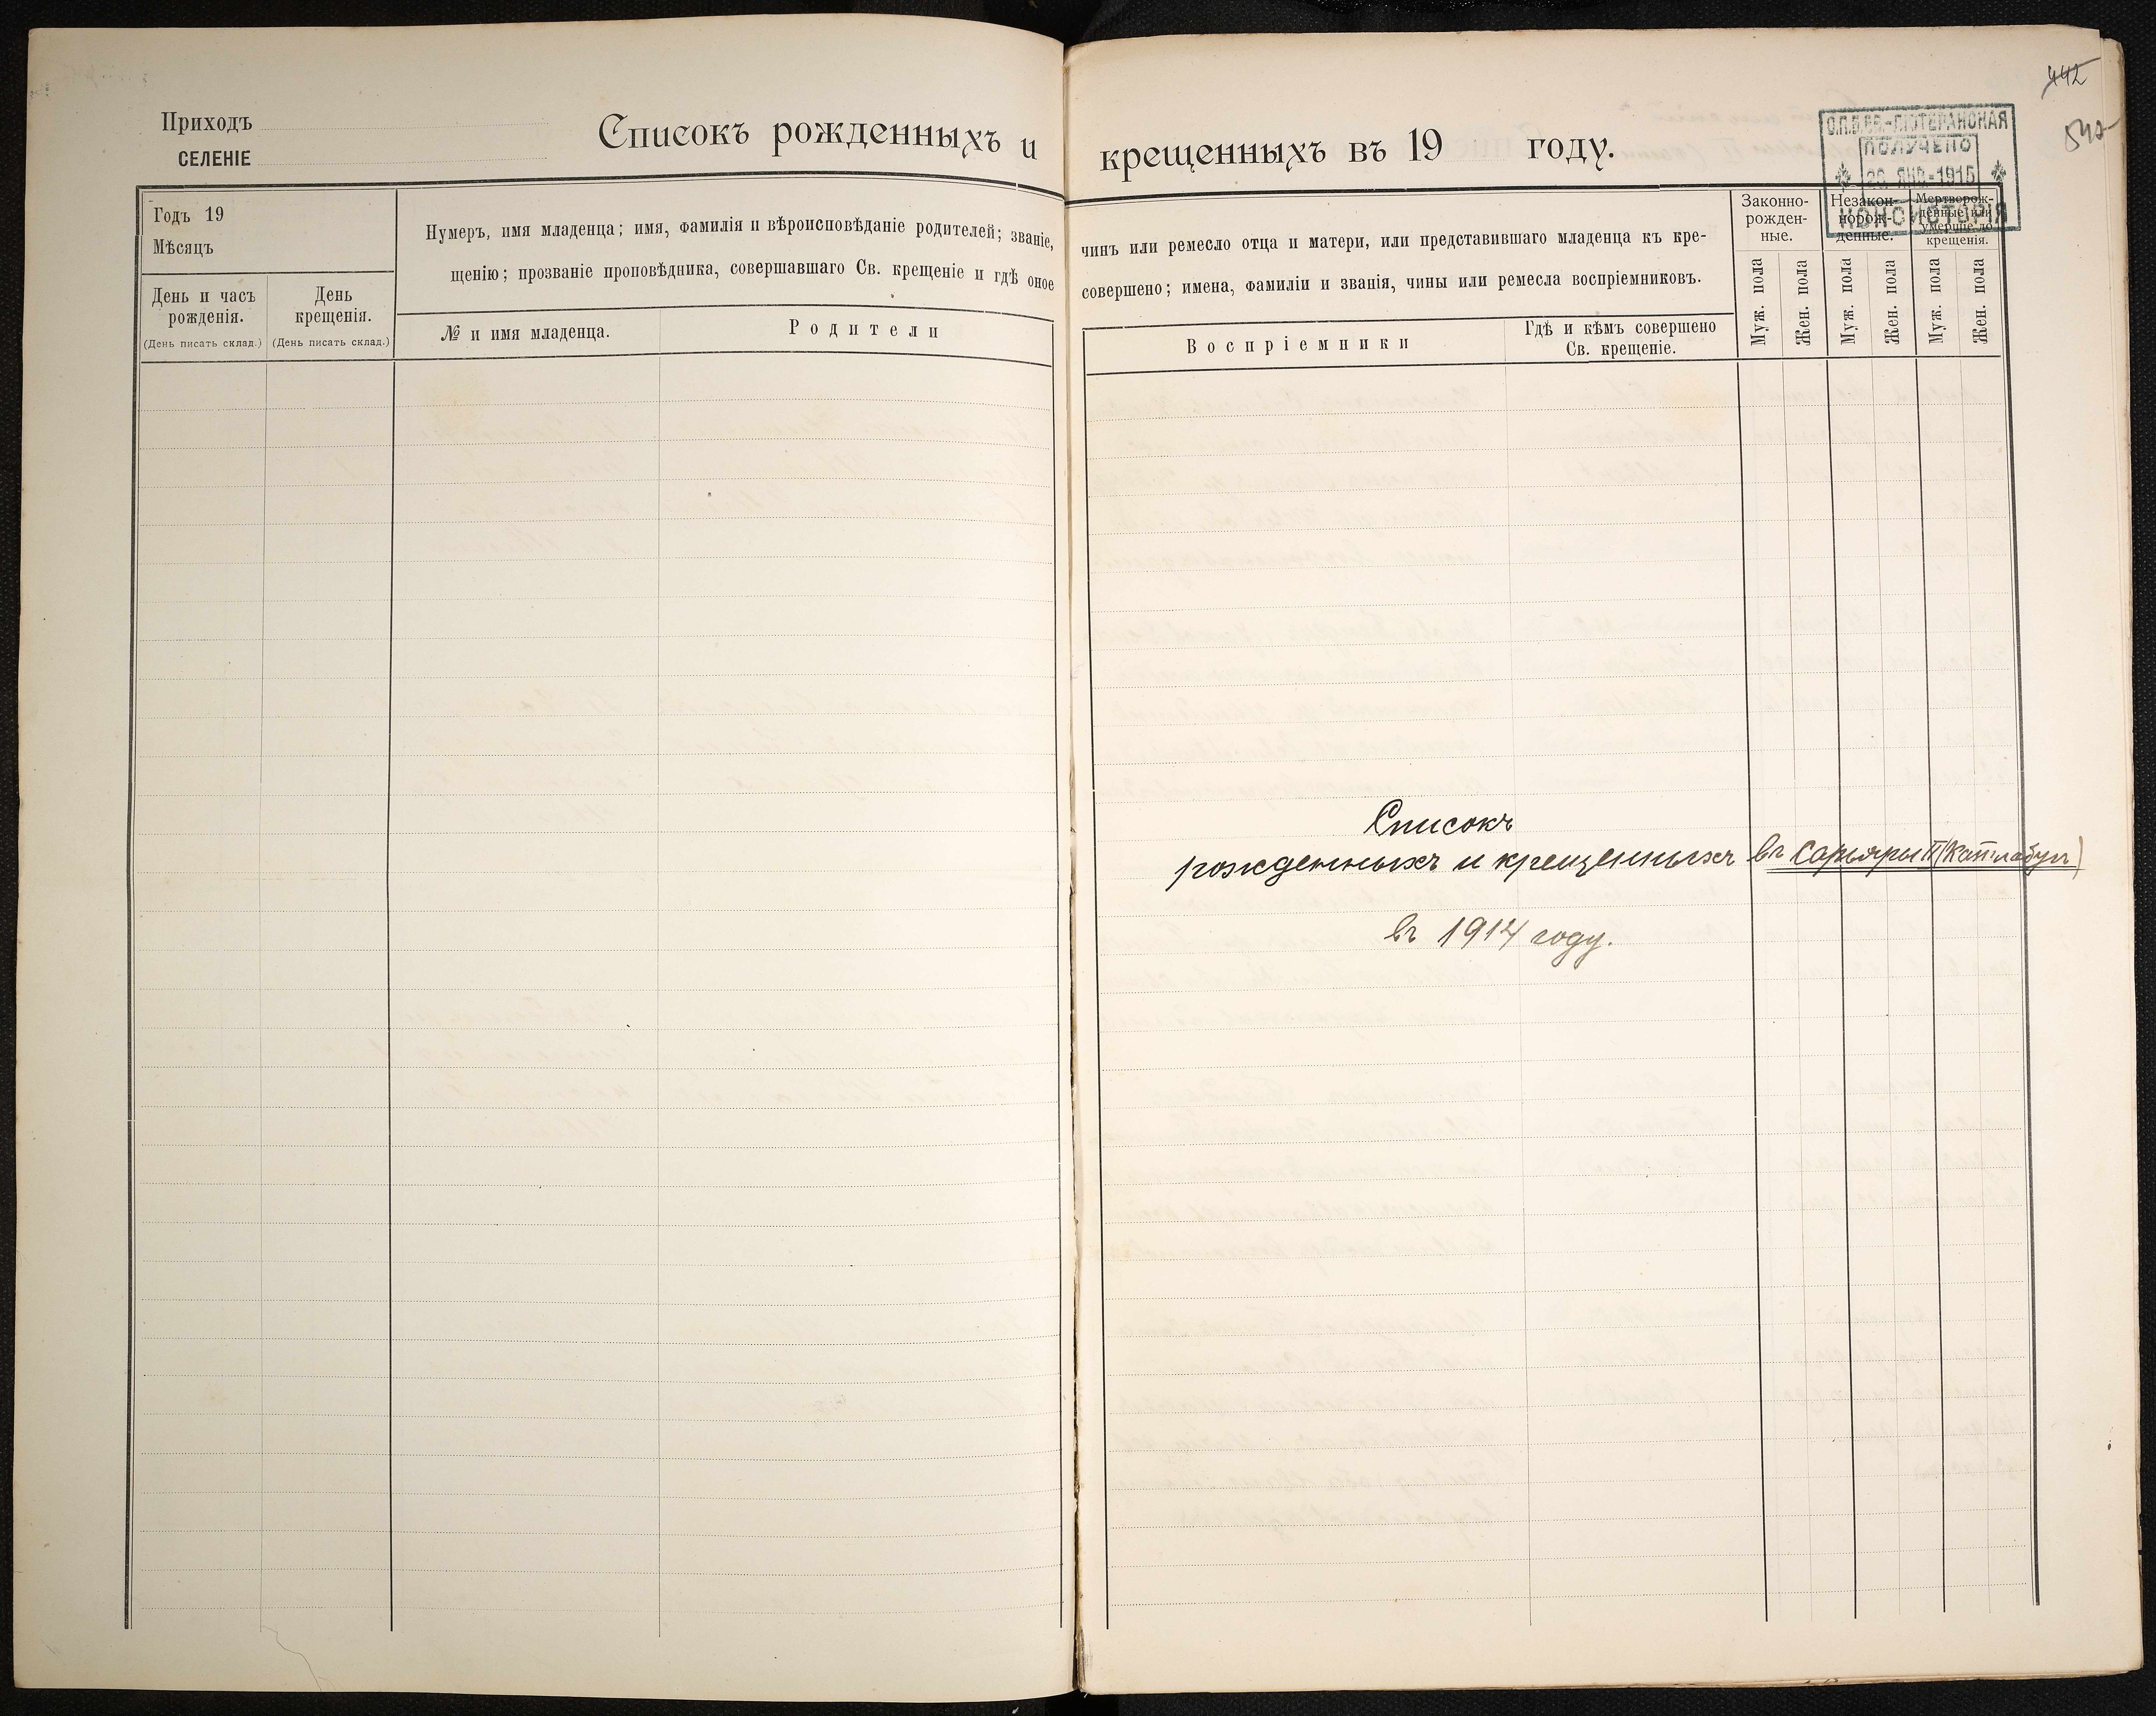 Приходъ
СЕЛЕНІЕ
Списокъ рожденныхъ и крещенныхъ въ 19 году.
442
542
С.П.Б.ЕВ.-ЛЮТЕРАНСКАЯ
ПОЛУЧЕНО
20 ЯНВ-1915
КОНСИСТОРІЯ
Годъ 19
Мѣсяцъ
День и часъ рожденія.
(День писать склад.)
День крещенія.
(День писать склад.)
Нумеръ, имя младенца; имя, фамилія и вѣроисповѣданіе родителей; званіе, чинъ или ремесло отца и матери, или представившаго младенца къ кре-
щенію; прозваніе проповѣдника, совершавшаго Св. крещеніе и гдѣ оное совершено; имена, фамиліи и званія, чины или ремесла воспріемниковъ.
№ и имя младенца.
Родители
Воспріемники
Гдѣ и кѣмъ совершено
Св. крещеніе.
Законно-
рожден-
ные.
Незакон-
норож-
денные.
Мертворож-
денные или
умершіе до
крещенія.
Муж. пола
Жен. пола
Муж. пола
Жен. пола
Муж. пола
Жен. пола
Списокъ
рожденныхъ и крещенныхъ въ Сарьяры II
въ 1914 году.